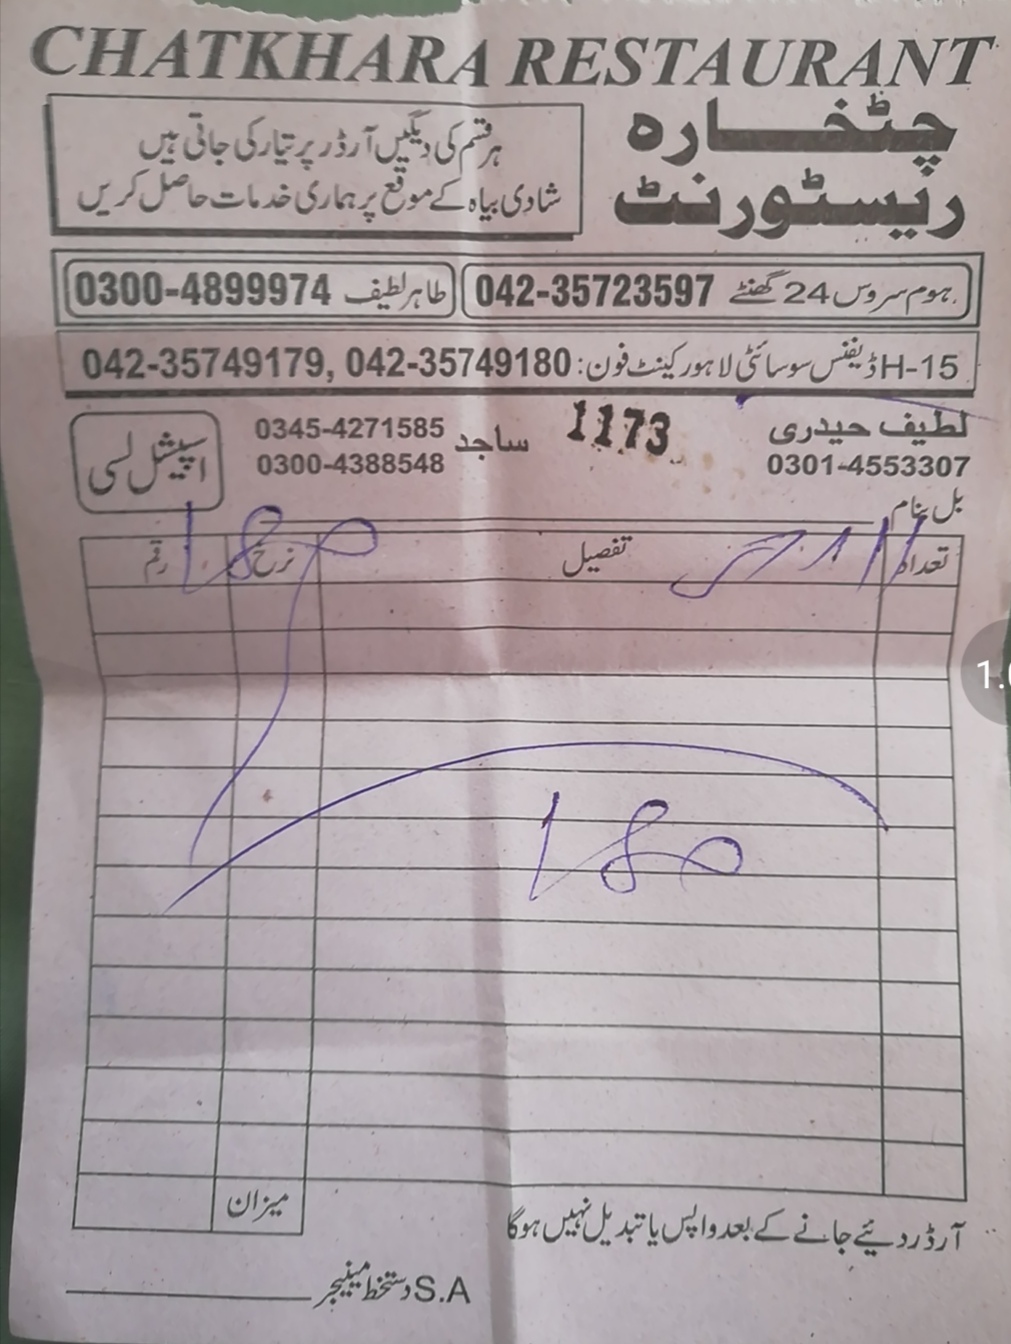 CHATKHARA RESTAURANT
چٹخارہ
ریسٹورنٹ
ہر قسم کی دیگیں آرڈر پر تیار کی جاتی ہیں
شادی بیاہ کے موقع پر ہماری خدمات حاصل کریں
ہوم سروس 24 گھنٹے 042-35723597
طاہر لطیف 0300-4899974
H-15 ڈیفنس سوسائٹی لاہور کینٹ فون: 042-35749179, 042-35749180
لطیف حیدری
0301-4553307
1173
ساجد 0345-4271585
0300-4388548
اسپیشل لسی
بل بنام
تعداد تفصیل نرخ رقم
180
180
میزان
آرڈر دئیے جانے کے بعد واپس یا تبدیل نہیں ہوگا
S.A دستخط مینیجر